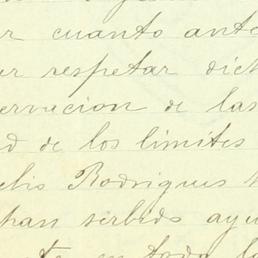 r cuanto ante
er respetar dich
ervacion de las
d de los limites
elis Rodrigues
han serbido ayu
te en toda la